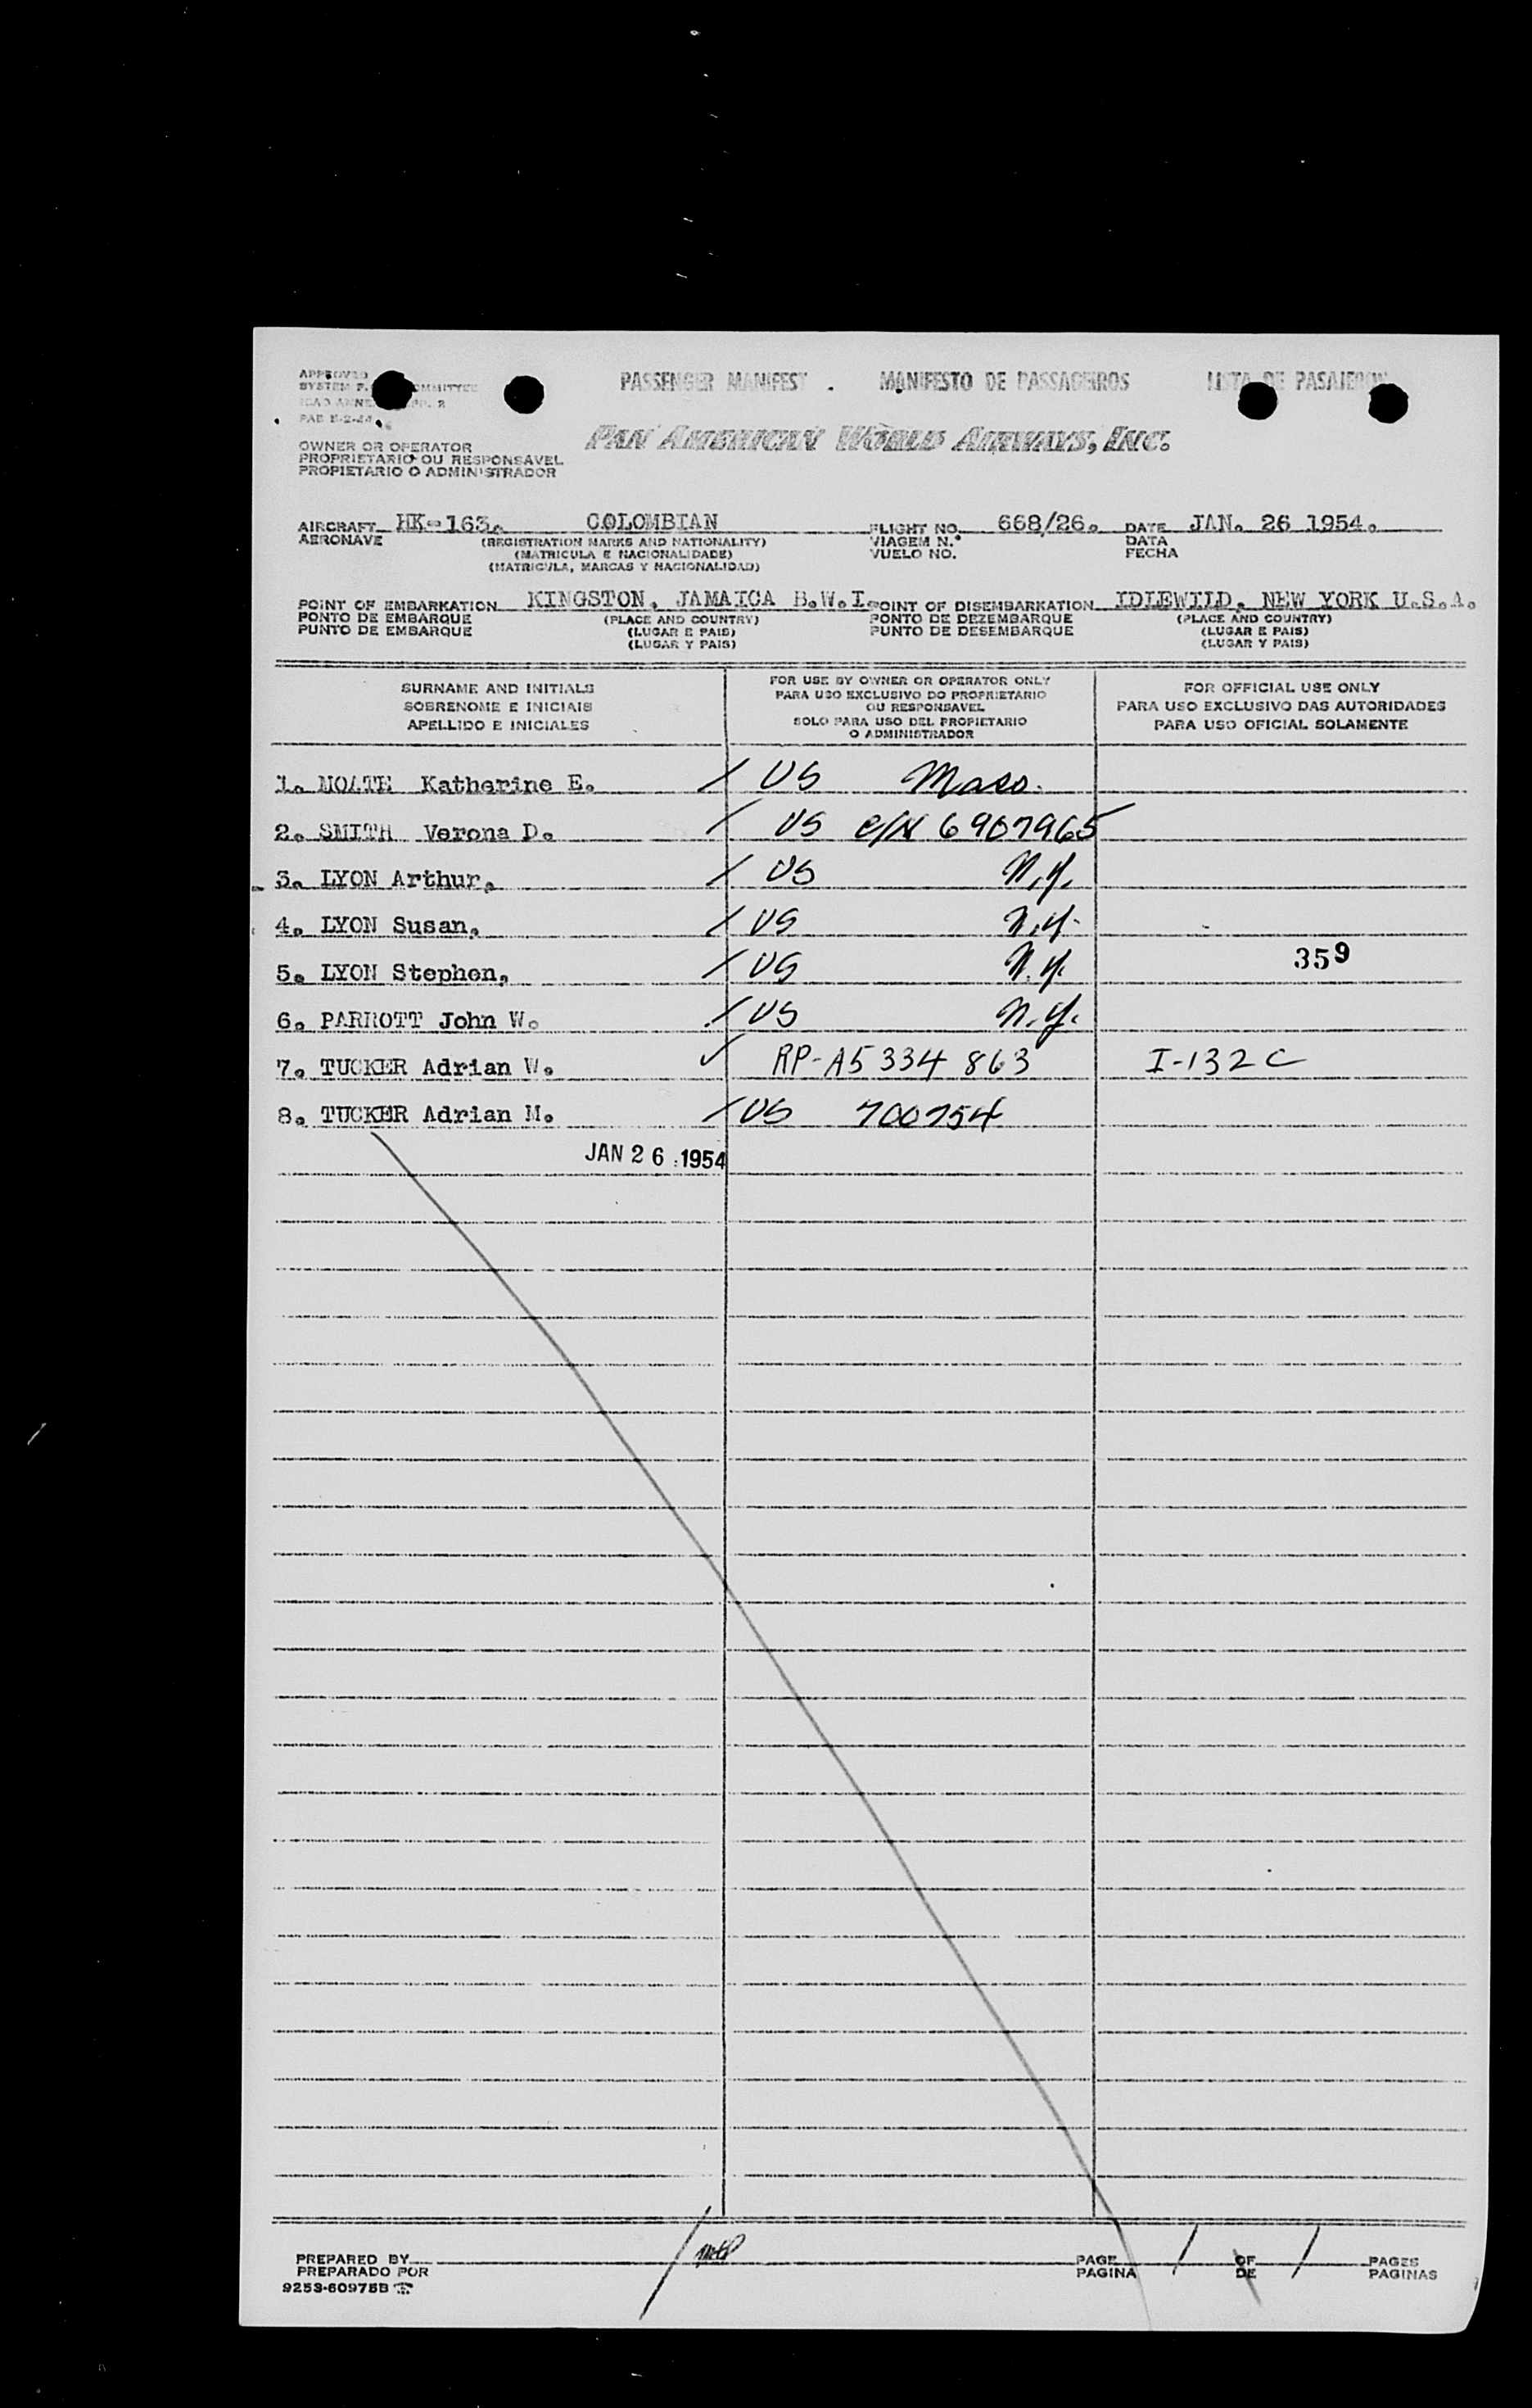 APPROVED
SYSTEM F. COMMITTEE
ICAO ANNE PP. 2
PASSENGER MANIFEST . MANIFESTO DE PASSAGEIROS LISTA DE PASAJEROS
PAN AMERICAN WORLD AIRWAYS, INC.
OWNER OR OPERATOR
PROPRIETARIO OU RESPONSAVEL
PROPIETARIO O ADMINISTRADOR
AIRCRAFT HK-163. COLOMBIAN FLIGHT NO. 668/26. DATE JAN. 26 1954.
AERONAVE (REGISTRATION MARKS AND NATIONALITY) VIAGEM N.° DATA
(MATRICULA E NACIONALIDADE) VUELO NO. FECHA
(MATRICULA, MARCAS Y NACIONALIDAD)
POINT OF EMBARKATION KINGSTON, JAMAICA B.W.I. POINT OF DISEMBARKATION IDLEWILD, NEW YORK U.S.A.
PONTO DE EMBARQUE (PLACE AND COUNTRY) PONTO DE DEZEMBARQUE (PLACE AND COUNTRY)
PUNTO DE EMBARQUE (LUGAR E PAIS) PUNTO DE DESEMBARQUE (LUGAR E PAIS)
(LUGAR Y PAIS) (LUGAR Y PAIS)
SURNAME AND INITIALS
SOBRENOME E INICIAIS
APELLIDO E INICIALES
FOR USE BY OWNER OR OPERATOR ONLY
PARA USO EXCLUSIVO DO PROPRIETARIO
OU RESPONSAVEL
SOLO PARA USO DEL PROPIETARIO
O ADMINISTRADOR
FOR OFFICIAL USE ONLY
PARA USO EXCLUSIVO DAS AUTORIDADES
PARA USO OFICIAL SOLAMENTE
1. Katherine E. / US Mass.
2. SMITH Verona D. / US C/N 6907965
3. LYON Arthur. / US N.Y.
4. LYON Susan. / US N.Y.
5. LYON Stephen. / US N.Y. 359
6. PARROTT John W. / US N.Y.
7. TUCKER Adrian W. ✓ RP-A5 334 863 I-132C
8. TUCKER Adrian M. / US 700754
JAN 26 1954
PREPARED BY PAGE 1 OF 1 PAGES
PREPARADO POR PAGINA DE PAGINAS
9253-60975B